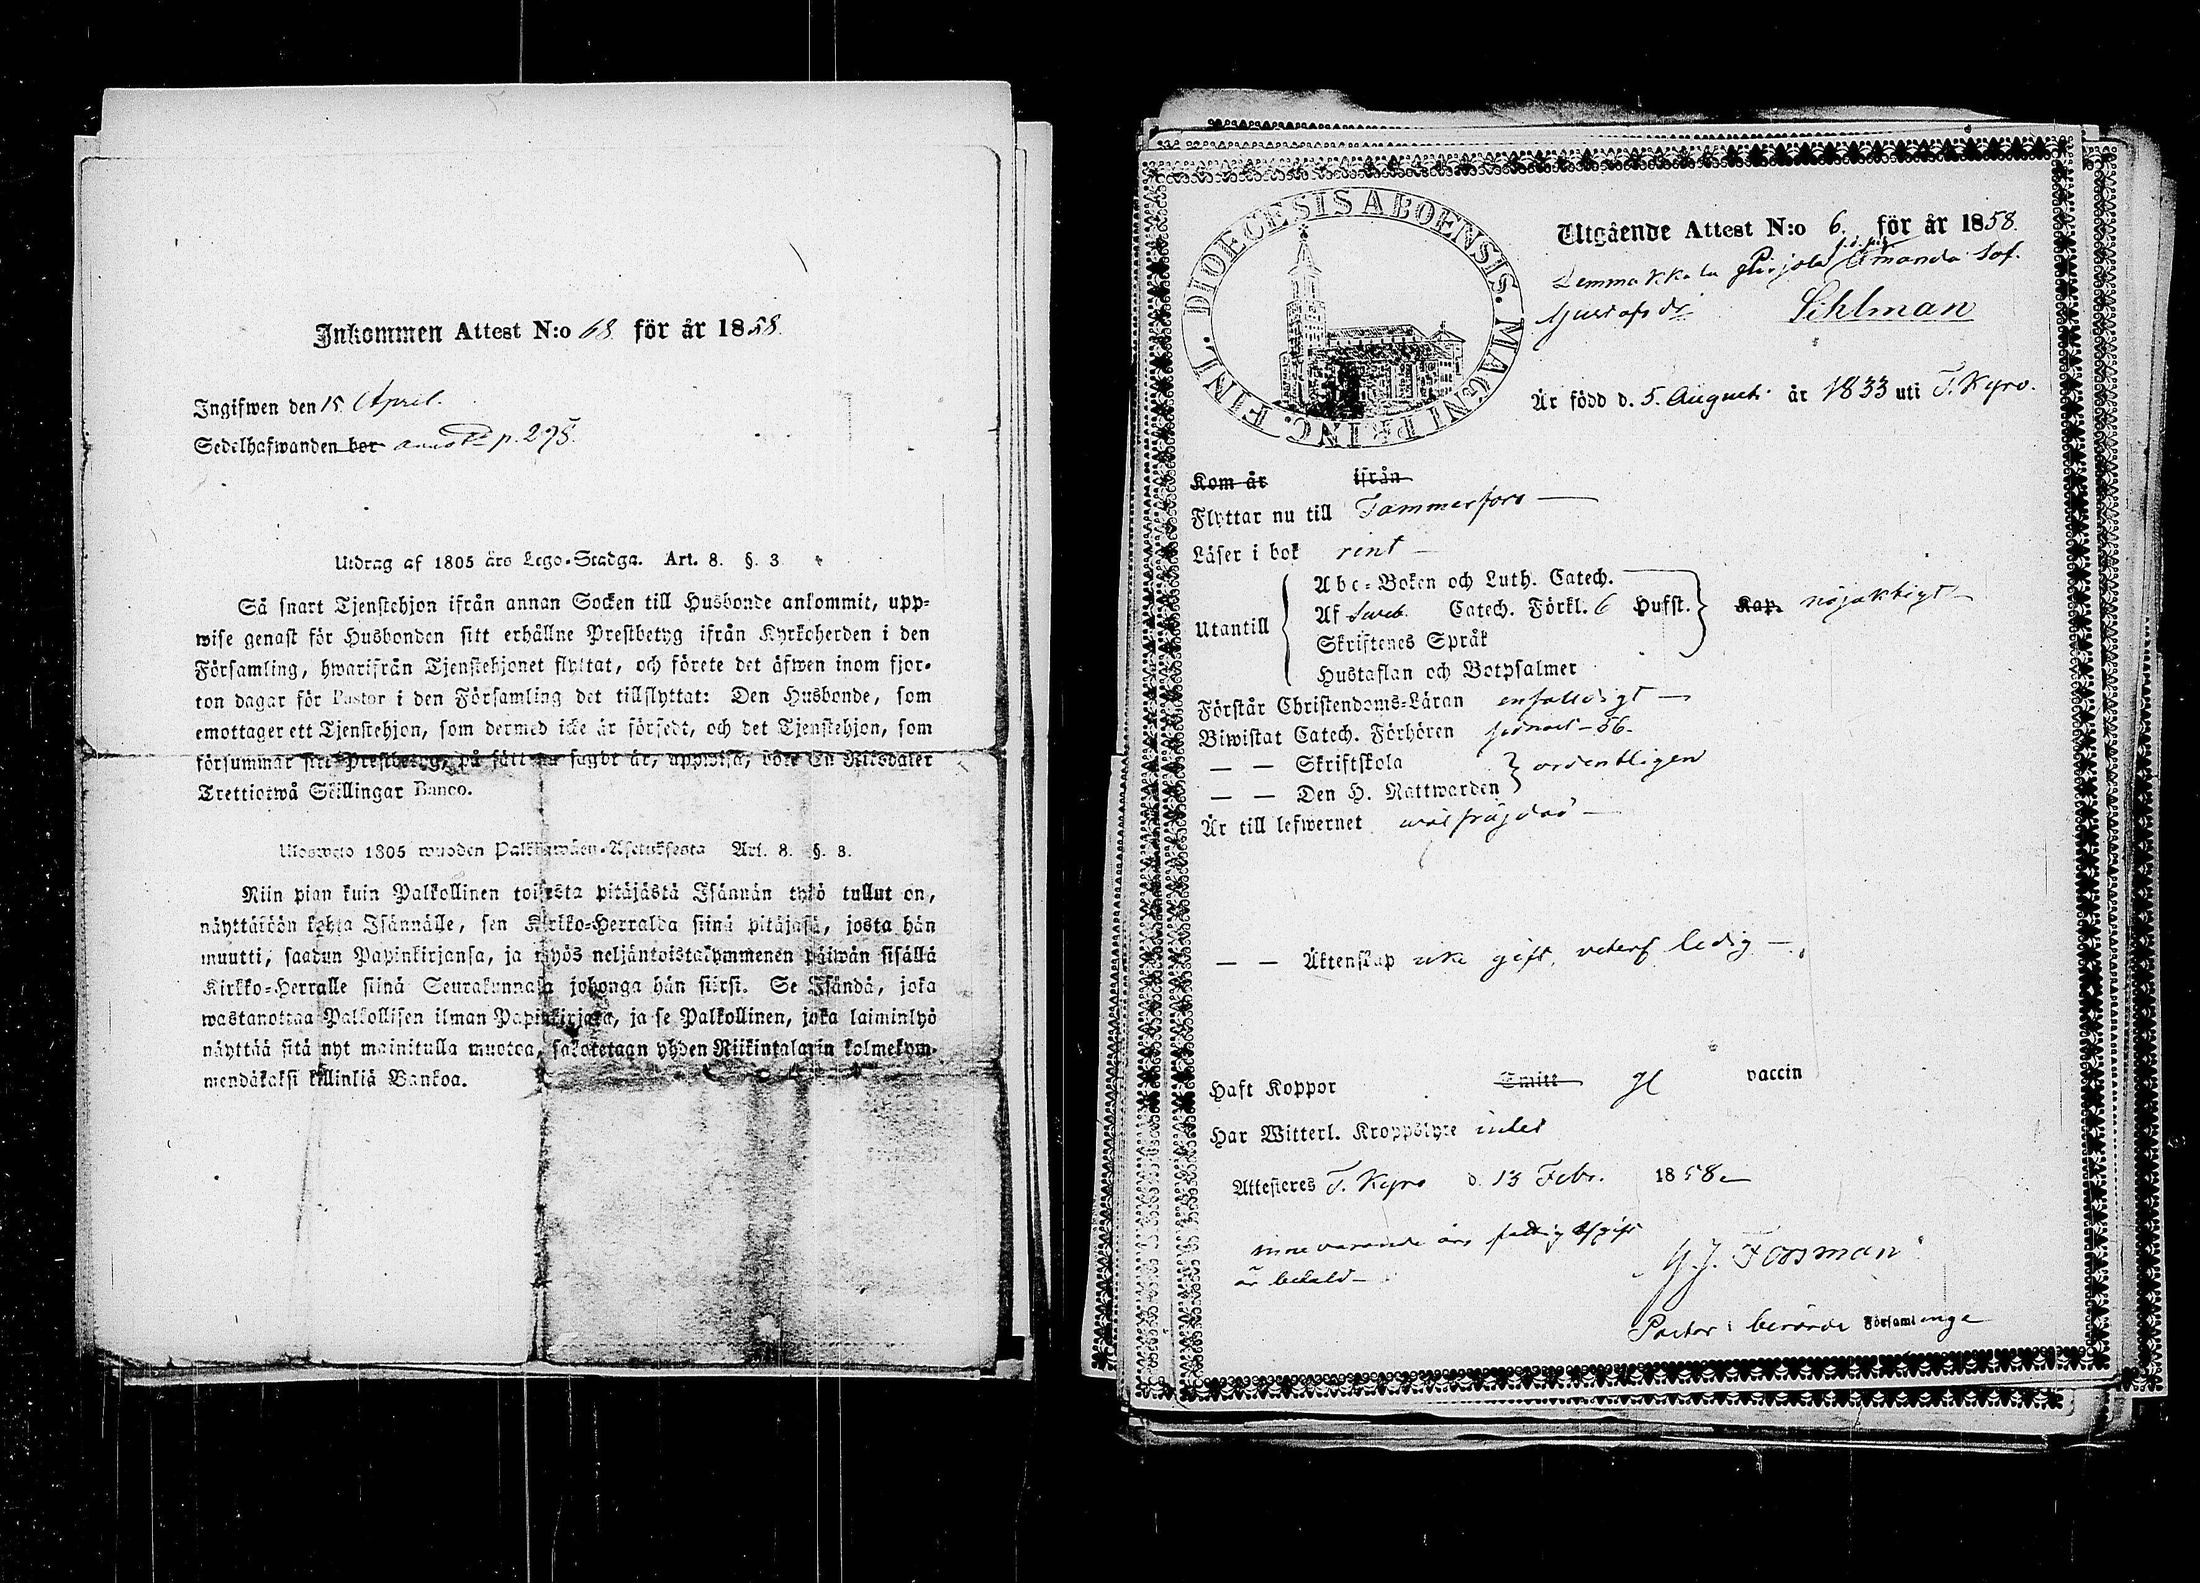 Inkommen Attest N:o 68 för år 1858.
Ingifwen den 15 April.
Sedelhafwanden bor p. 275.
Utdrag af 1805 års Lego-Stadga. Art. 8. §. 3
Så snart Tjenstehjon ifrån annan Socken till Husbonde ankommit, upp-
wise genast för Husbonden sitt erhållne Prestbetyg ifrån Kyrkoherden i den
Församling, hwarifrån Tjenstehjonet flyttat, och förete det äfwen inom fjor-
ton dagar för Pastor i den Församling det tillflyttat: Den Husbonde, som
emottager ett Tjenstehjon, som dermed icke är försedt, och det Tjenstehjon, som
försummar sitt Prestbetyg, på sätt nu sagdt är, uppwisa, böte En Riksdaler
Trettiotwå Skillingar Banco.
Ulosweto 1805 wuoden Palkkawäen-Asetuksesta Art. 8. §. 3.
Niin pian kuin Palkollinen toisesta pitäjästä Isännän tykö tullut on,
näyttäköön kohta Isännälle, sen Kirkko-Herralda siinä pitäjäsä, josta hän
muutti, saadun Papinkirjansa, ja myös neljäntoistakymmenen päiwän sisällä
Kirkko-Herralle siinä Seurakunnasa johonga hän siirsi. Se Isändä, joka
wastanottaa Palkollisen ilman Papinkirjata, ja se Palkollinen, joka laiminlyö
näyttää sitä nyt mainitulla muotoa, sakotetaan yhden Riikintalarin kolmekym-
mendäkaksi killinkiä Bankoa.
DIOECESIS ABOENSIS. MAGNI PRINC. FINL.
Utgående Attest N:o 6. för år 1858.
Lemmakkala Pirjola Amanda Sof.
Gustafsdr Sihlman
Är född d. 5. Augusti år 1833 uti T. Kyro.
Kom år ifrån
Flyttar nu till Tammerfors
Läser i bok rent
Utantill
Abc-Boken och Luth. Catech.
Af Sweb. Catech. Förkl. 6 Hufst.
Skriftenes Språk
Hustaflan och Botpsalmer
Kap. nöjaktigt
Förstår Christendoms-Läran enfaldigt
Biwistat Catech. Förhören sednast - 56.
— — Skriftskola
— — Den H. Nattwarden
ordentligen
Är till lefwernet wälfrägdad
— — Äktenskap icke gift, veterl ledig
Haft Koppor Smitt gl vaccin
Har Witterl. Kroppslyte intet
Attesteres T. Kyro d. 13 Febr. 1858
innevarande års fattig afgift
är betald
G. J. Forsman
Pastor i berörde Församlinge